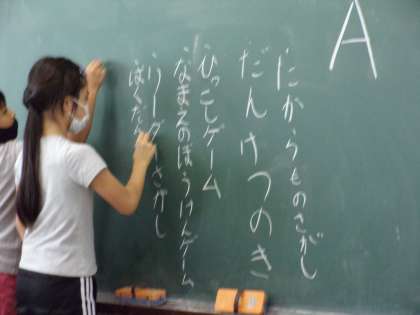 A
たからものさがし
だんけつのき
ひっこしゲーム
なまえのぼうけんゲーム
リーダーさがし
ばくだん